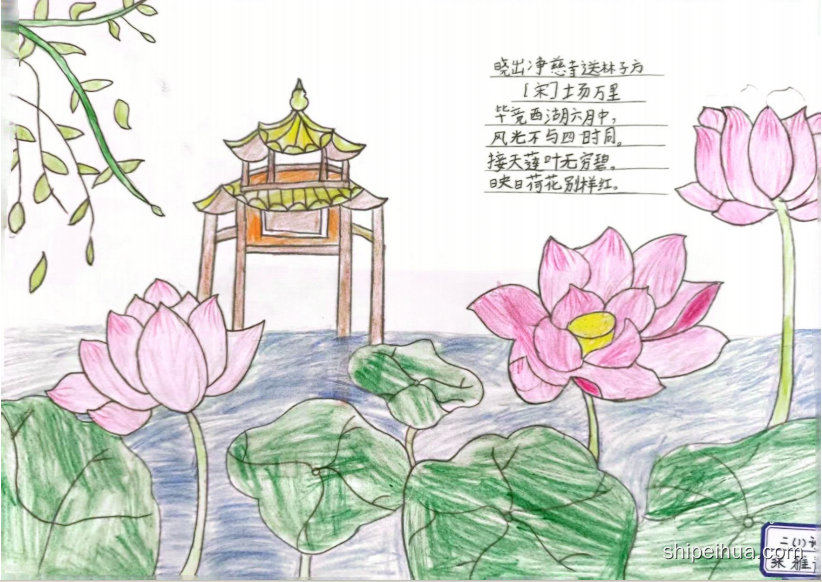 晓出净慈寺送林子方
[宋]杨万里
毕竟西湖六月中,
风光不与四时同。
接天莲叶无穷碧。
映日荷花别样红。
二(1)
shipeihua.com
张雅